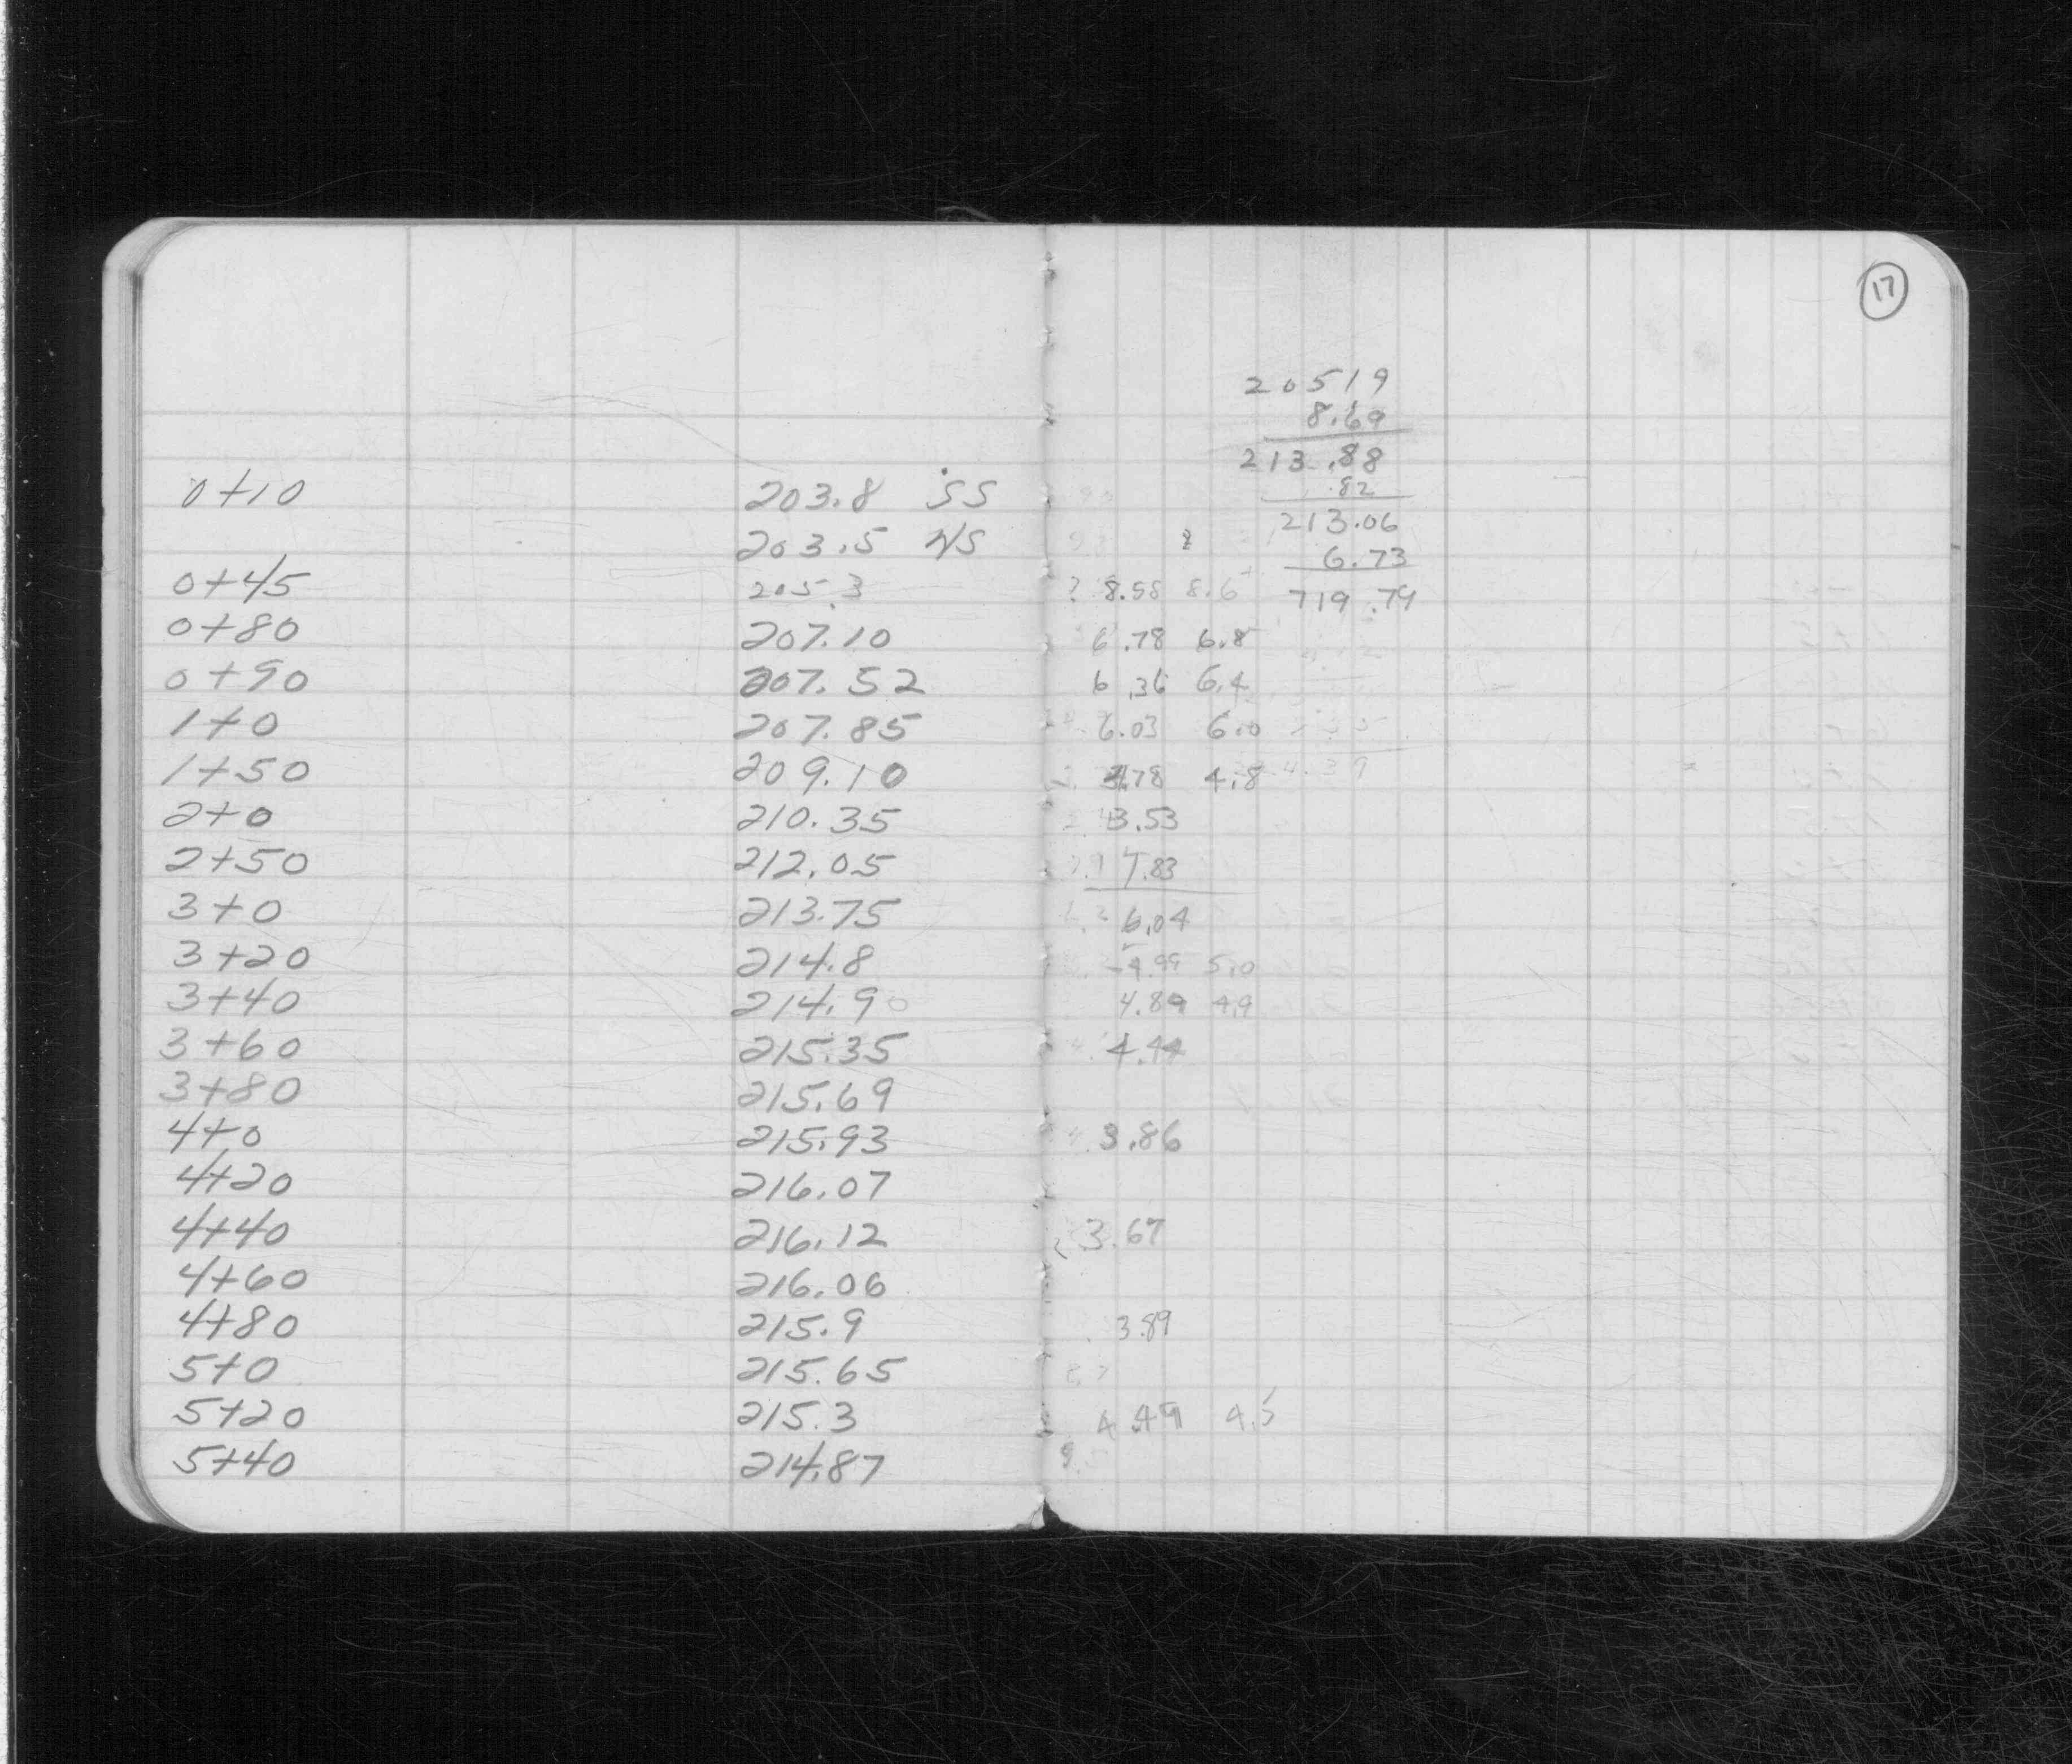 17
20519
8.69
213.88
.82
213.06
6.73
719.79
0+10 203.8 SS
203.5 NS
0+45 205.3 ? 8.58 8.6
0+80 207.10 6.78 6.8
0+90 207.52 6.36 6.4
1+0 207.85 6.03 6.0
1+50 209.10 4.78 4.8 4.39
2+0 210.35 3.53
2+50 212.05 1.83
3+0 213.75 6.04
3+20 214.8 4.99 5.0
3+40 214.90 4.89 4.9
3+60 215.35 4.44
3+80 215.69
4+0 215.93 3.86
4+20 216.07
4+40 216.12 3.67
4+60 216.06
4+80 215.9 3.89
5+0 215.65
5+20 215.3 4.49 4.5
5+40 214.87